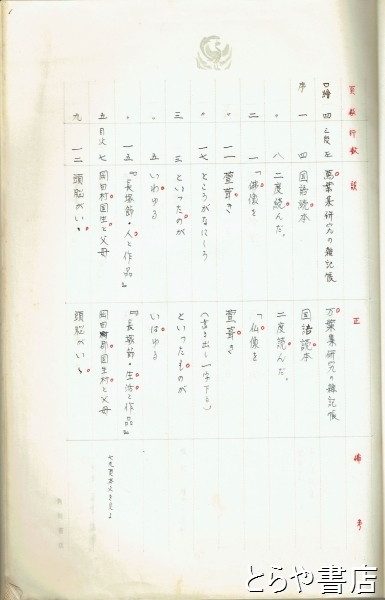 頁数 行数 誤 正 備考
口繪 四 上段左 萬葉集研究の雑記帳 万葉集研究の雑記帳
序 一 四 国語続本 国語読本
八 二度続んだ。 二度読んだ。
二 一 「佛像を 「仏像を
〃 一一 萱葺き 萱葺き
〃 一七 ところがなにしろ (書き出し一字下り)
三 三 といったのが といったものが
〃 五 いわゆる いはゆる
〃 一五 『長塚節・人と作品』 『長塚節・生活と作品』
五 目次 七 岡田村国生と父母 岡田郡国生村と父母 七九頁本文も全じ
九 一二 頭脳がいゝ 頭脳がいゝ
とらや書店